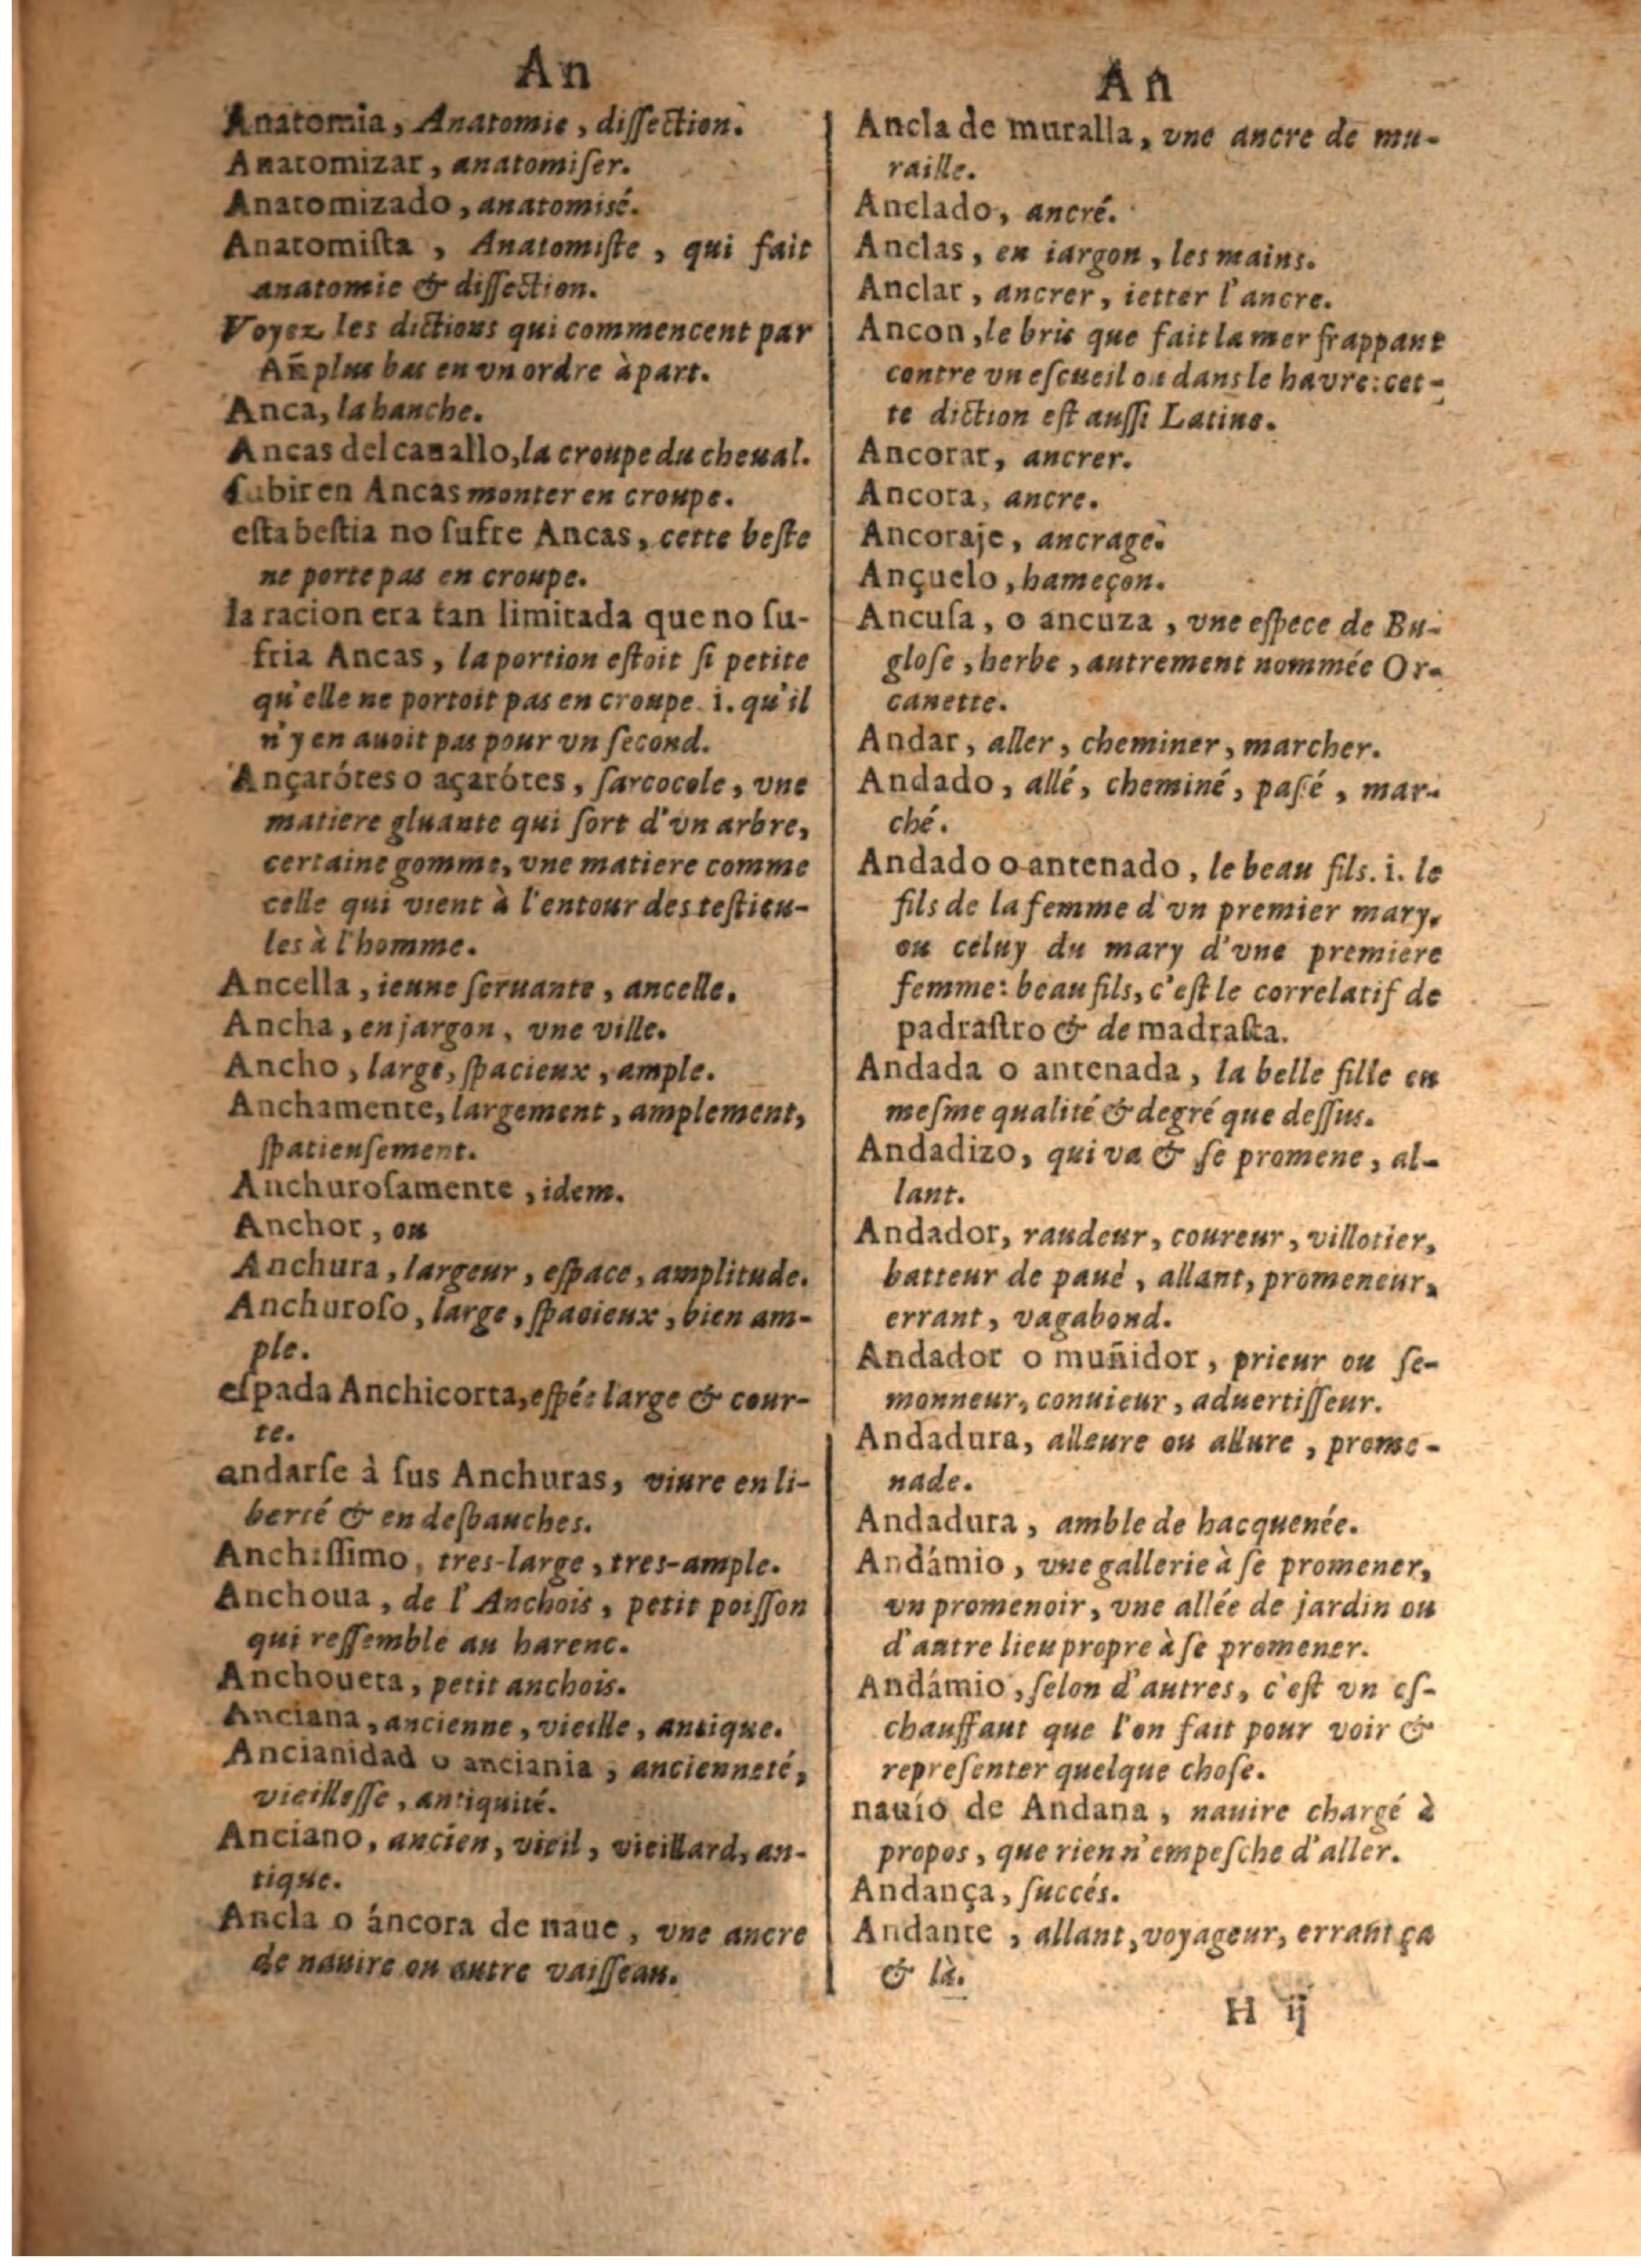 An
Anatomia, Anatomie, diſſection.
Anatomizar, anatomiſer.
Anatomizado, anatomisé.
Anatomiſta, Anatomiſte, qui fait
anatomie & diſſection.
Voyez les dictions qui commencent par
Añ plus bas en vn ordre à part.
Anca, la hanche.
Ancas del cauallo, la croupe du cheual.
ſubir en Ancas monter en croupe.
eſta beſtia no ſufre Ancas, cette beſte
ne porte pas en croupe.
la racion era tan limitada que no ſu-
fria Ancas, la portion eſtoit ſi petite
qu'elle ne portoit pas en croupe. i. qu'il
n'y en auoit pas pour vn ſecond.
Ançarótes o açarótes, ſarcocole, vne
matiere gluante qui ſort d'vn arbre,
certaine gomme, vne matiere comme
celle qui vient à l'entour des teſticu-
les à l'homme.
Ancella, ieune ſeruante, ancelle.
Ancha, en jargon, vne ville.
Ancho, large, ſpacieux, ample.
Anchamente, largement, amplement,
ſpatieuſement.
Anchuroſamente, idem.
Anchor, ou
Anchura, largeur, eſpace, amplitude.
Anchuroſo, large, ſpacieux, bien am-
ple.
eſpada Anchicorta, eſpée large & cour-
te.
andarſe à ſus Anchuras, viure en li-
berté & en deſbauches.
Anchiſſimo, tres-large, tres-ample.
Anchoua, de l'Anchois, petit poiſſon
qui reſſemble au harenc.
Anchoueta, petit anchois.
Anciana, ancienne, vieille, antique.
Ancianidad o anciania, ancienneté,
vieilleſſe, antiquité.
Anciano, ancien, vieil, vieillard, an-
tique.
Ancla o áncora de naue, vne ancre
de nauire ou autre vaiſſeau.
An
Ancla de muralla, vne ancre de mu-
raille.
Anclado, ancré.
Anclas, en iargon, les mains.
Anclar, ancrer, ietter l'ancre.
Ancon, le bris que fait la mer frappant
contre vn eſcueil ou dans le havre: cet-
te diction eſt auſſi Latine.
Ancorar, ancrer.
Ancora, ancre.
Ancoraje, ancrage.
Ançuelo, hameçon.
Ancuſa, o ancuza, vne eſpece de Bu-
gloſe, herbe, autrement nommée Or-
canette.
Andar, aller, cheminer, marcher.
Andado, allé, cheminé, paſsé, mar-
ché.
Andado o antenado, le beau fils. i. le
fils de la femme d'vn premier mary,
ou celuy du mary d'vne premiere
femme: beau fils, c'eſt le correlatif de
padraſtro & de madraſta.
Andada o antenada, la belle fille en
meſme qualité & degré que deſſus.
Andadizo, qui va & ſe promene, al-
lant.
Andador, raudeur, coureur, villotier,
batteur de paué, allant, promeneur,
errant, vagabond.
Andador o muñidor, prieur ou ſe-
monneur, conuieur, aduertiſſeur.
Andadura, alleure ou allure, prome-
nade.
Andadura, amble de hacquenée.
Andámio, vne gallerie à ſe promener,
vn promenoir, vne allée de jardin ou
d'autre lieu propre à ſe promener.
Andámio, ſelon d'autres, c'eſt vn eſ-
chauffaut que l'on fait pour voir &
repreſenter quelque choſe.
nauío de Andana, nauire chargé à
propos, que rien n'empeſche d'aller.
Andança, ſuccés.
Andante, allant, voyageur, errant ça
& là.
H ij